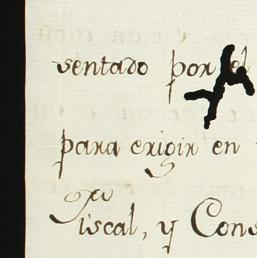 sentado por el
para erigir en
Fiscal, y Cons